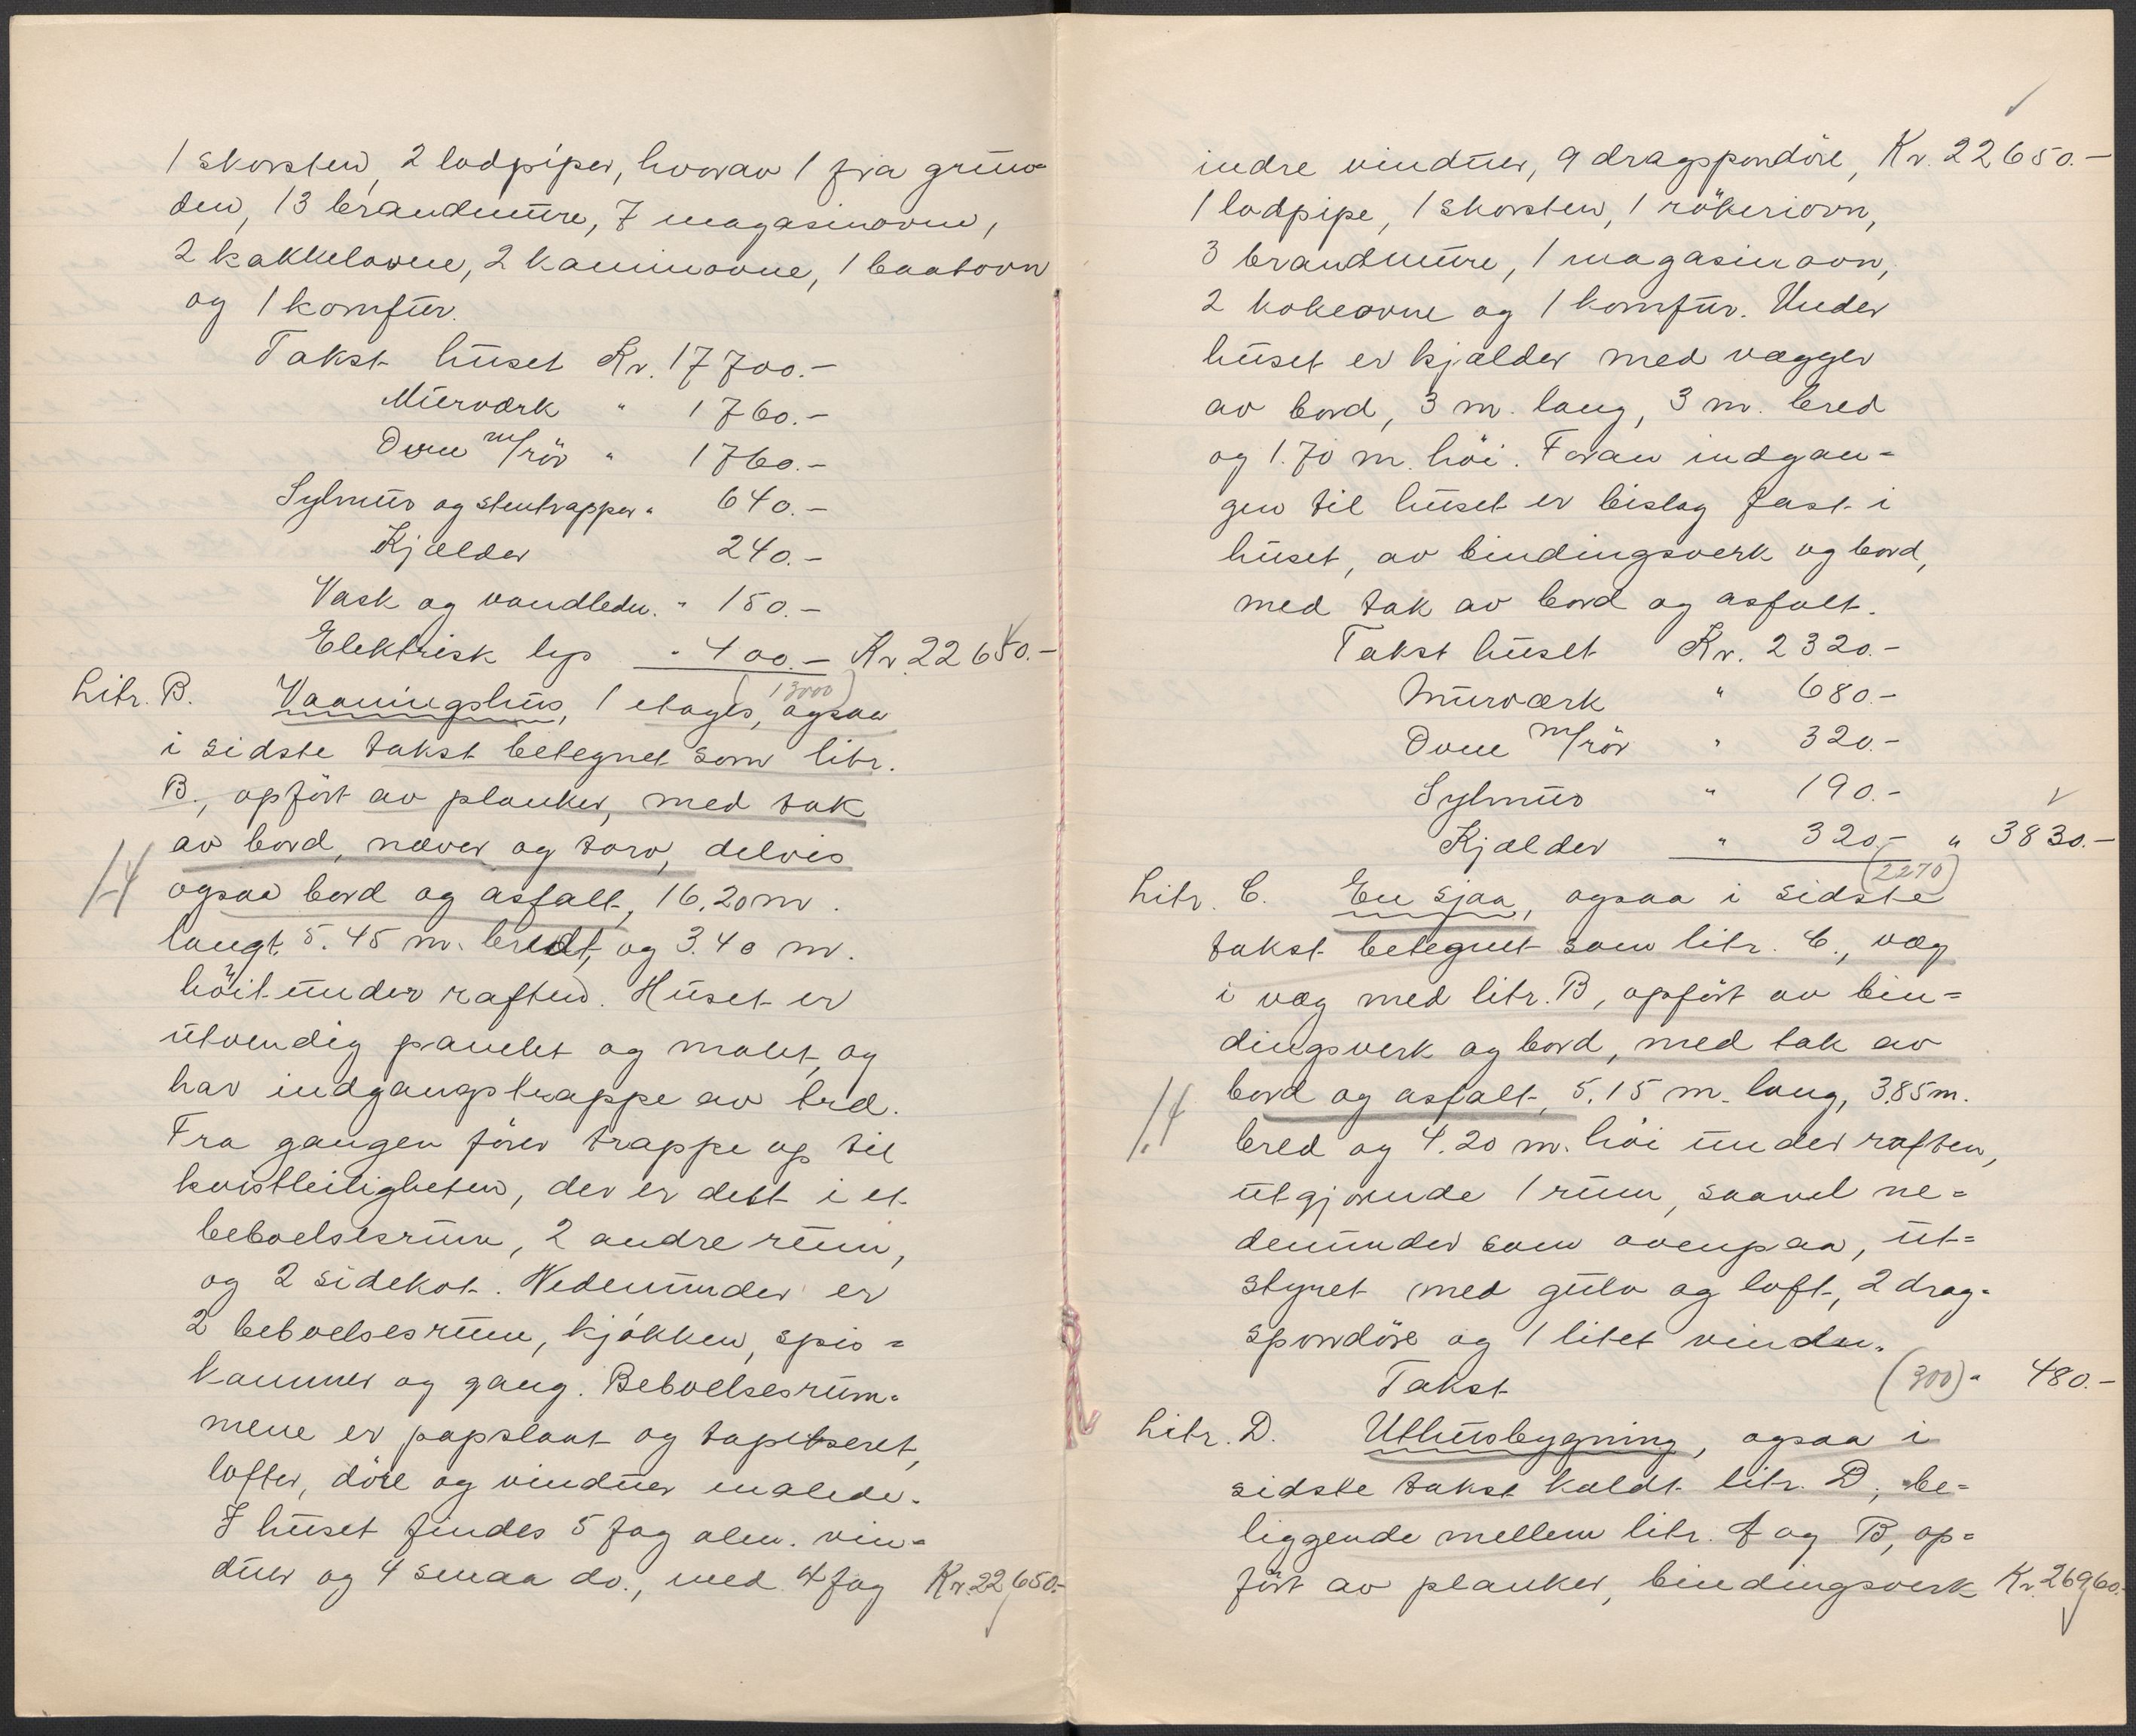 1 skorsten, 2 lodpiper, hvorav 1 fra grun=
den, 13 brandmure, 7 magasinovne,
2 kakkelovne, 2 kaminovne, 1 baatovn
og 1 komfur.
Takst huset Kr. 17 700.-
Murværk " 1 760.-
Ovne m/rör " 1760.-
Sylmur og stentrapper " 640.-
Kjælder 240.-
Vask og vandledn. " 150.-
Elektrisk lys " 400.- Kr. 22650.-
(13000)
Litr. B. Vaaningshus, 1 etages, ogsaa
i sidste takst betegnet som litr.
B., opfört av planker, med tak
av bord, næver og torv, delvis
14 ogsaa bord og asfalt, 16.20 m.
langt, 5.45 m. bredt, og 3.40 m.
höit under raften. Huset er
utvendig panelet og malet, og
har indgangstrappe av bred.
Fra gangen förer trappe op til
kvistleiligheten, der er delt i et
beboelsesrum, 2 andre rum,
og 2 sidekot. Nedenunder er
2 beboelsesrum, kjökken, spis=
kammer og gang. Beboelsesrum=
mene er papslaat og tapetseret,
lofter, döre og vinduer malede.
I huset findes 5 fag alm. vin=
duer og 4 smaa do., med 4 fag Kr. 22 650.-
indre vinduer, 9 dragspondöre, Kr. 22650.-
1 lodpipe, 1 skorsten, 1 rökeriovn,
3 brandmure, 1 magasinovn,
2 kokeovne og 1 komfur. Under
huset er kjælder med vægger
av bord, 3 m. lang, 3 m. bred
og 1.70 m. höi. Foran indgan=
gen til huset er bislag fast i
huset, av bindingsverk og bord,
med tak av bord og asfalt.
Takst huset Kr. 2320.-
Murværk " 680.-
Ovne m/rör " 320.-
Sylmur " 190.-
Kjælder " 320.- " 3830.-
(2270)
Litr. C. En sjaa, ogsaa i sidste
takst betegnet som litr. C., væg
i væg med litr. B, opfört av bin=
dingsverk og bord, med tak av
14 bord og asfalt, 5.15 m. lang, 3.85 m.
bred og 4.20 m. höi under raften,
utgjörende 1 rum, saavel ne=
denunder som ovenpaa, ut=
styret med gulv og loft, 2 drag=
spondöre og 1 litet vindu.
Takst (300) " 480.-
Litr. D. Uthusbygning, ogsaa i
sidste takst kaldt litr. D, be=
liggende mellem litr. A og B, op=
fört av planker, bindingsverk Kr. 26960.-